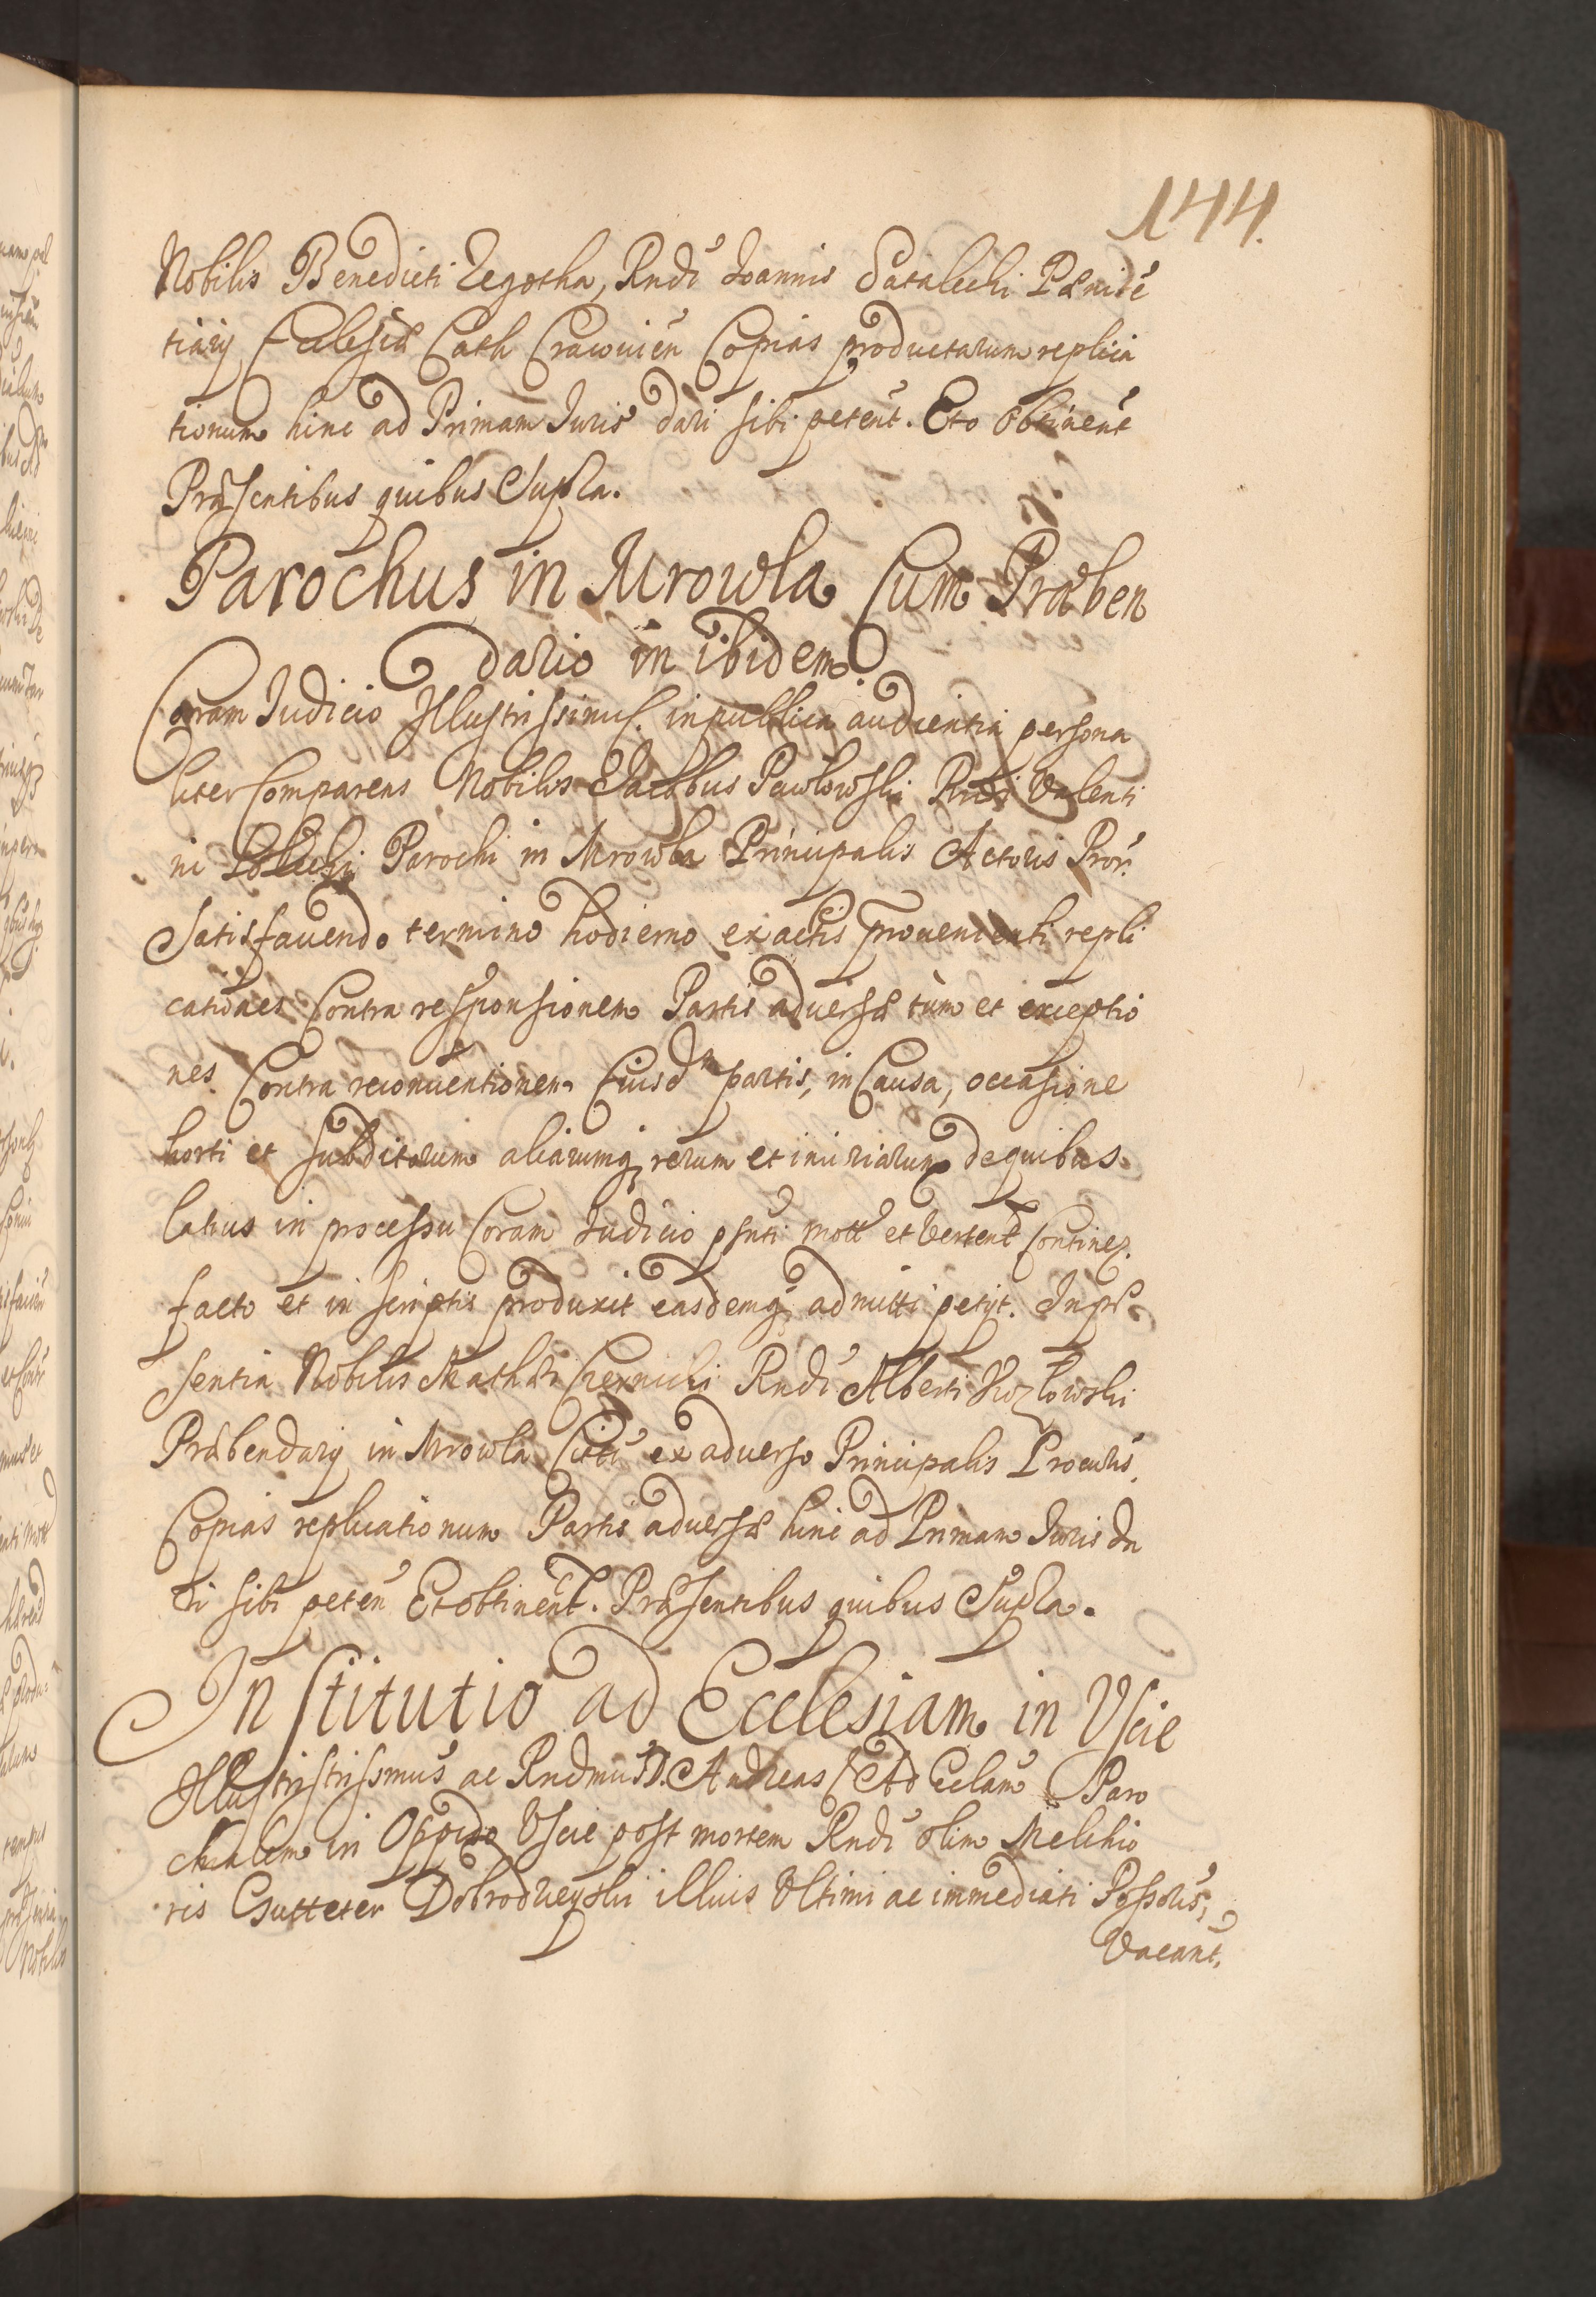 144.
Nobilis Benedicti Zegotha, Rndi Joannis Satalecki Pœnitē
tiarij Ecclesiæ Cath Cracouien Copias productarum replica
tionum hinc ad Primam Iuris dari sibi petent. Et obtinent
Præsentibus quibus Supra.
Parochus in Mrowla Cum Præben
dario in ibidem.
Coram Iudicio Illustrissimi. in publica audientia persona
liter Comparens Nobilis Jacobus Pawlowski Rndi Valenti
ni Parochi in Mrowla Principalis Actoris Pror.
Satisfaciendo termino hodierno ex actis prouenienti repli
cationes Contra responsionem Partis aduersæ tum et exceptio
nes Contra reconuentionem Eiusdm partis, in Causa, occasione
horti et subditorum aliarumq rerum et iniuriarum de quibus
latius in processu Coram Iudicio pñti mott et Vertent Continet.
facto et in scriptis produxit easdemq admitti petijt. In præ
sentia Nobilis Mathæi Czernicki Rndi Alberti Kozlowski
Præbendarij in Mrowla Citti ex aduerso Principalis Procuris
Copias replicationum Partis aduersæ hinc ad Primam Iuris da
ri sibi peten Et obtinent. Præsentibus quibus Supra.
Institutio ad Ecclesiam in Vscie
Illustristrissmus ac Rndmus D. Andreas Ad Eclam Paro
chialem in Oppido Vscie post mortem Rndi olim Melchio
ris Gutteter Dobrodzieyski illius Vltimi ac immediati Possoris,
Vacant.